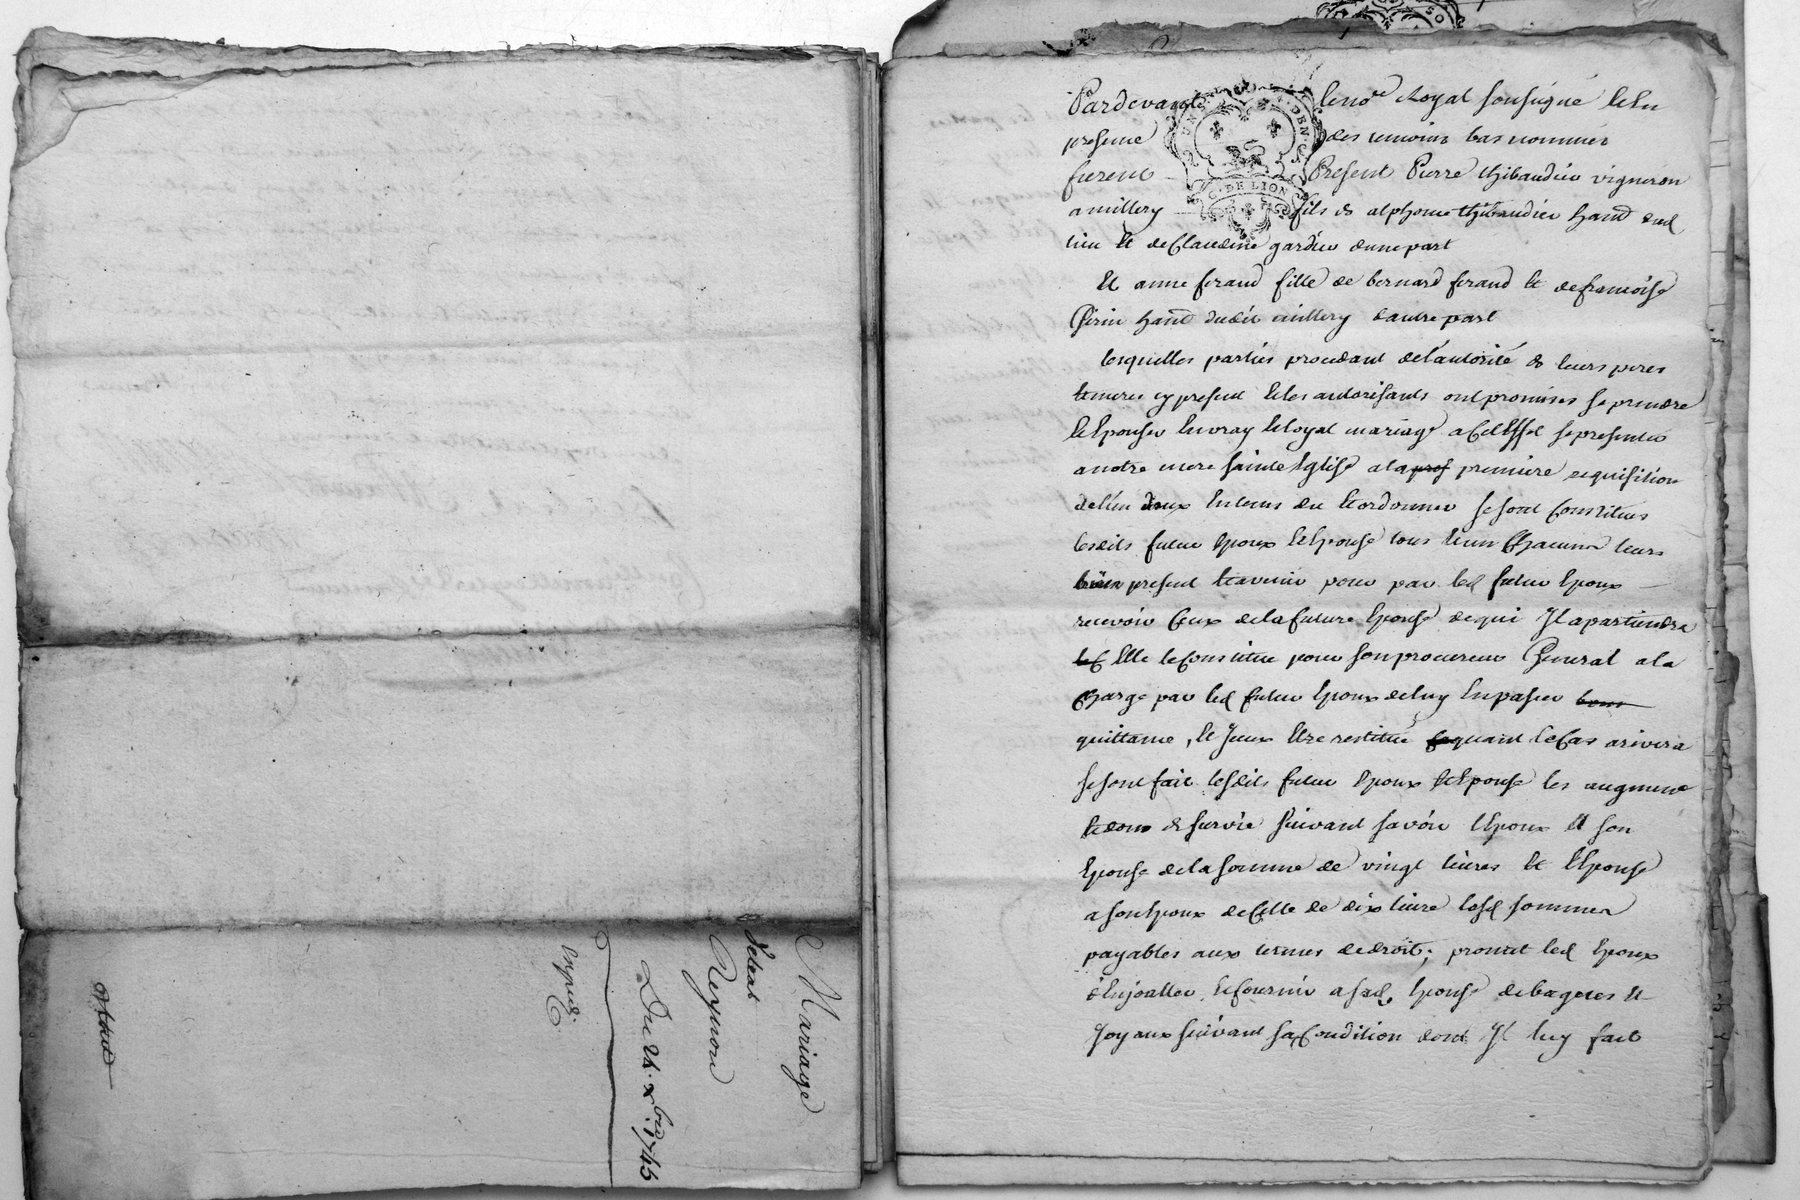 Mariage
d'était
Reynon
Du 24. xbre 1745
Expied.
Pardevant le no.re Royal soussigné Et En
presence des temoins bas nommes
furent Present Pierre thibaudier vigneron
a millery fils de alphonse thibaudier hant dud
lieu Et de Claudine gardier dune part
Et anne feraud fille de bernard feraud Et de francoise
Perin hant dudit millery dautre part
lesquelles parties procedant de l'autorité de leurs peres
Et meres cy present Et les autorisants ont promises se prendre
Et Epouser En vray Et loyal mariage a Cet Effet se presenter
a notre mere sainte Eglise a la pres premiere requisition
de l'un deux Entems du Et ordonner se sont Constitues
lesdits futur Epoux Et Epouse tous Et un Chacuns leurs
biens present Et avenir pour par led futur Epoux
recevoir Ceux de la future Epouse de qui Il apartiendra
Elle le Constitue pour son procureur General a la
Charge par led futur Epoux de luy En passer bonne
quittance, Et Iceux Etre restitué quant Le Cas arivera
se sont fait lesdits futur Epoux Et Epouse les augment
Et dons de survie suivant savoir l'Epoux A son
Epouse de la somme de vingt livres Et l'Epouse
a son Epoux de Celle de dix livre lesd sommes
payables aux termes de droit; promet led Epoux
d'Enjoaller Et fournir a sad. Epouse de bagues Et
Joyaux suivant sa Condition dont Il luy fait
UN
DEN
G. DE LION